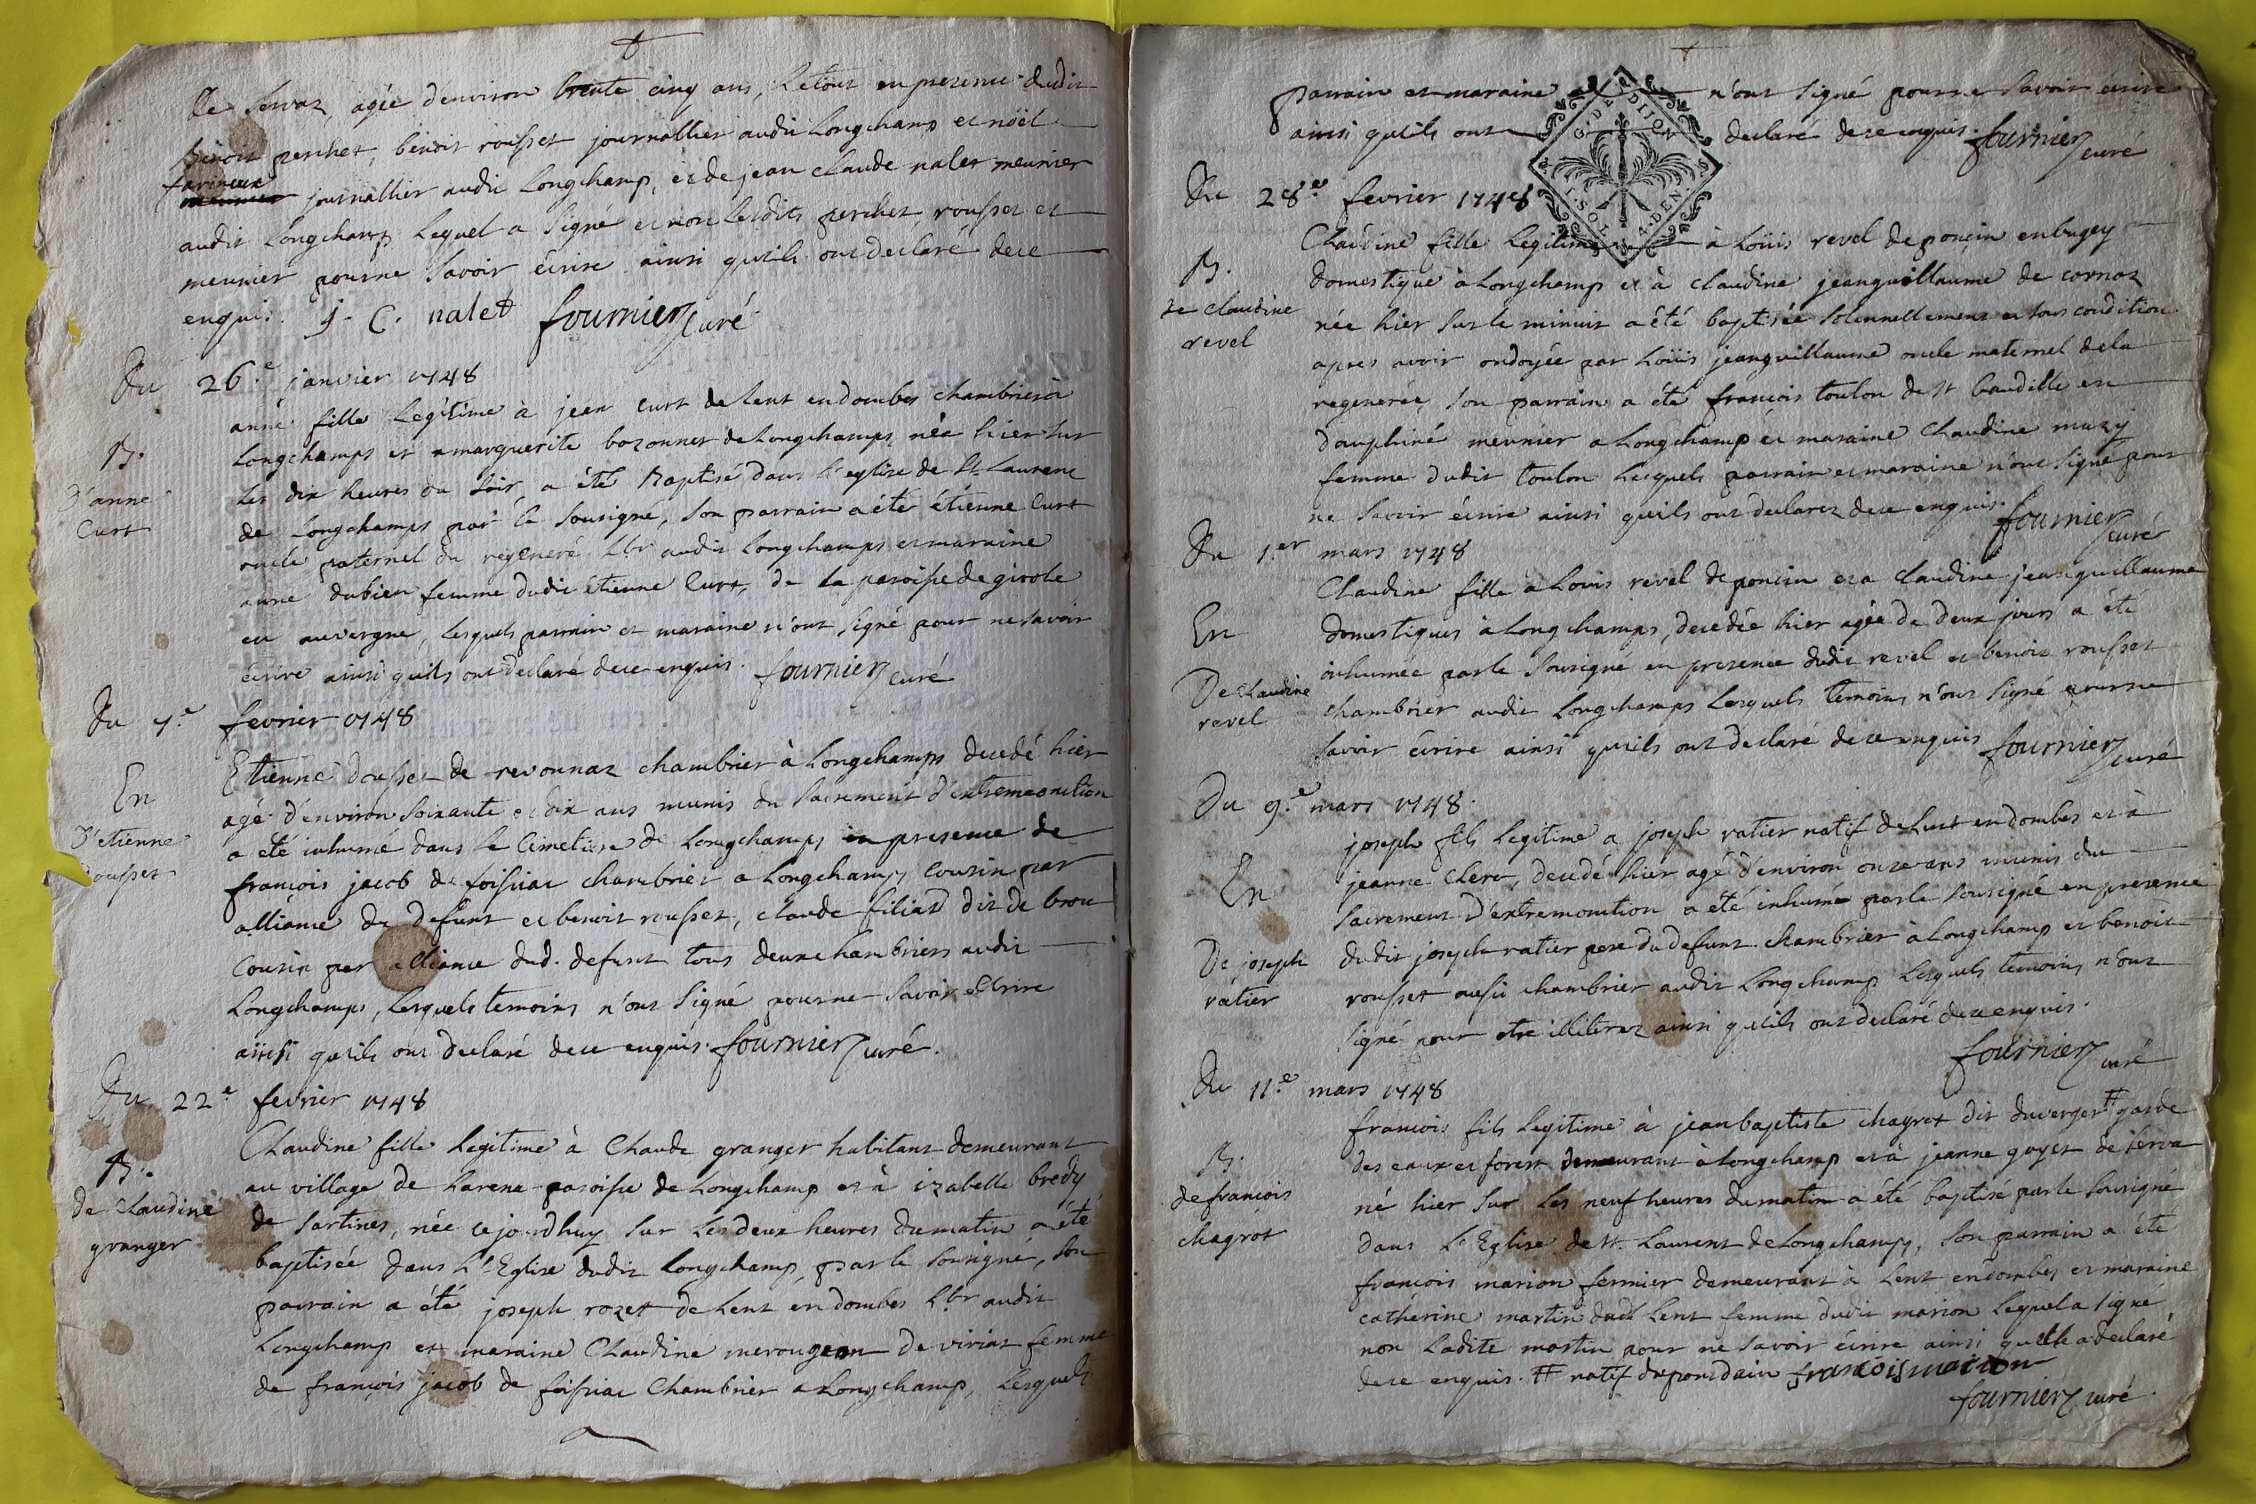 de servaz agée denviron trente cinq ans, Letout en presence dudit
Benoit perchet, benoit rousset journallier audit Longchamp et noël
farineux
journallier audit Longchamp, et de jean claude nalet meunier
audit Longchamp Lequel a signé et non Lesdits perchet rousset et
meunier pour ne savoir écrire ainsi quils ont declaré dece
enquis. J. C. nalet fournier curé
Du 26.e janvier 1748
B.
D'anne
Curt
anne fille Legitime à jean curt de Lent en dombes chambrier à
Longchamps et a marguerite bozonnet de Longchamps née hier sur
les dix heures du soir a été Baptisé dans l'eglise de St Laurent
de Longchamps par le sousigné, son parrain a été étienne Curt
oncle paternel du regeneré Lbr audit Longchamps et maraine
anne dubien femme dudit étienne Curt, de la paroisse de girole
en auvergne, Lesquels parrain et maraine n'ont signé pour ne savoir
écrire ainsi quils ont declaré dece enquis. fournier curé
Du 7.e fevrier 1748
En
D'etienne
dousset
Etienne dousset de revonnaz chambrier à Longchamps decedé hier
agé d'environ soixante et dix ans munis du sacrement d'extremeonction
a été inhumé dans le Cimetiere de Longchamps en presence de
françois jacob de foissiat chambrier a Longchamps cousin par
alliance du defunt et benoit rousset, claude filiat dit de brou
Cousin par alliance dud. defunt tous deux chambriers audit
Longchamps, Lesquels temoins n'ont signé pour ne savoir Ecrire
ainsi quils ont declaré dece enquis. fournier curé.
Du 22.e fevrier 1748
B.
de Claudine
granger
Claudine fille Legitime à Claude granger habitant demeurant
au village de Larena paroisse de Longchamp et à izabelle bredy
de sartines, née cejourdhuy sur Les deux heures dumatin a été
baptisée dans L'Eglise dudit Longchamp, par le sousigné, son
parrain a été joseph rozet de Lent en dombes Lbr audit
Longchamp et maraine Claudine merougeon de viriat femme
de françois jacob de foissiat Chambrier a Longchamp, Lesquels
parrain et maraine n'ont signé pour ne savoir écrire
ainsi quils ont declaré dece enquis. fournier curé
G. DE DIJON
I. SOL. 4. DEN.
Du 28.e fevrier 1748
B.
de claudine
revel
Claudine fille Legitime à Loüis revel de poncin enbugey
domestique à Longchamp et à claudine jeanguillaume de cornaz
née hier sur le minuit a été baptisée solennellement et sous condition
apres avoir ondoyée par Loüis jeanguillaume oncle maternel dela
regenerée, son parrain a été françois toulon de st baudille en
dauphiné meunier a Longchamp et maraine Claudine muzy
femme dudit toulon Lesquels parrain et maraine n'ont signé pour
ne savoir écrire ainsi quils ont declarez dece enquis. fournier curé
Du 1.er mars 1748
En
De Claudine
revel
Claudine fille a Louis revel de poncin et a Claudine jeanguillaume
domestiques à Longchamps, decedée hier agée de deux jours a été
inhumée par le sousigné en presence dudit revel et benoit rousset
chambrier audit Longchamps Lesquels temoins n'ont signé pour ne
savoir écrire ainsi quils ont declaré dece enquis fournier curé
Du 9.e mars 1748.
En
De joseph
ratier
joseph fils Legitime a joseph ratier natif de Lent en dombes et à
jeanne clerc, decedé hier agé d'environ onze ans munis du
sacrement D'extremonction a été inhumé par le sousigné en presence
dudit joseph ratier pere du defunt chambrier à Longchamp et benoit
rousset aussi chambrier audit Longchamp Lesquels temoins n'ont
signé pour etre illiterez ainsi quils ont declaré dece enquis.
fournier curé
Du 11.e mars 1748
B.
de francois
chagrot
francois fils Legitime à jean baptiste chagrot dit duverger # garde
des eaux et forest demeurant à Longchamp et à jeanne goyet de serva
né hier sur Les neuf heures dumatin a été baptisé par le sousigné
dans L'Eglise de st. Laurent de Longchamps, son parrain a été
françois marion fermier demeurant à Lent en dombes et maraine
catherine martin dudt Lent femme dudit marion Lequel a signé
non Ladite martin pour ne savoir écrire ainsi quelle a declaré
dece enquis. # natif du pont dain françois marion
fournier curé.